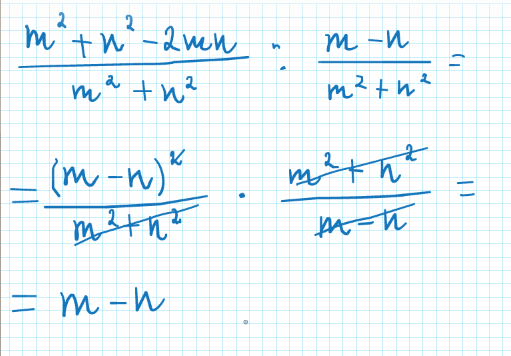 (m² + n² − 2mn)/(m² + n²) : (m − n)/(m² + n²) =
= (m − n)²/(m² + n²) · (m² + n²)/(m − n) =
= m − n